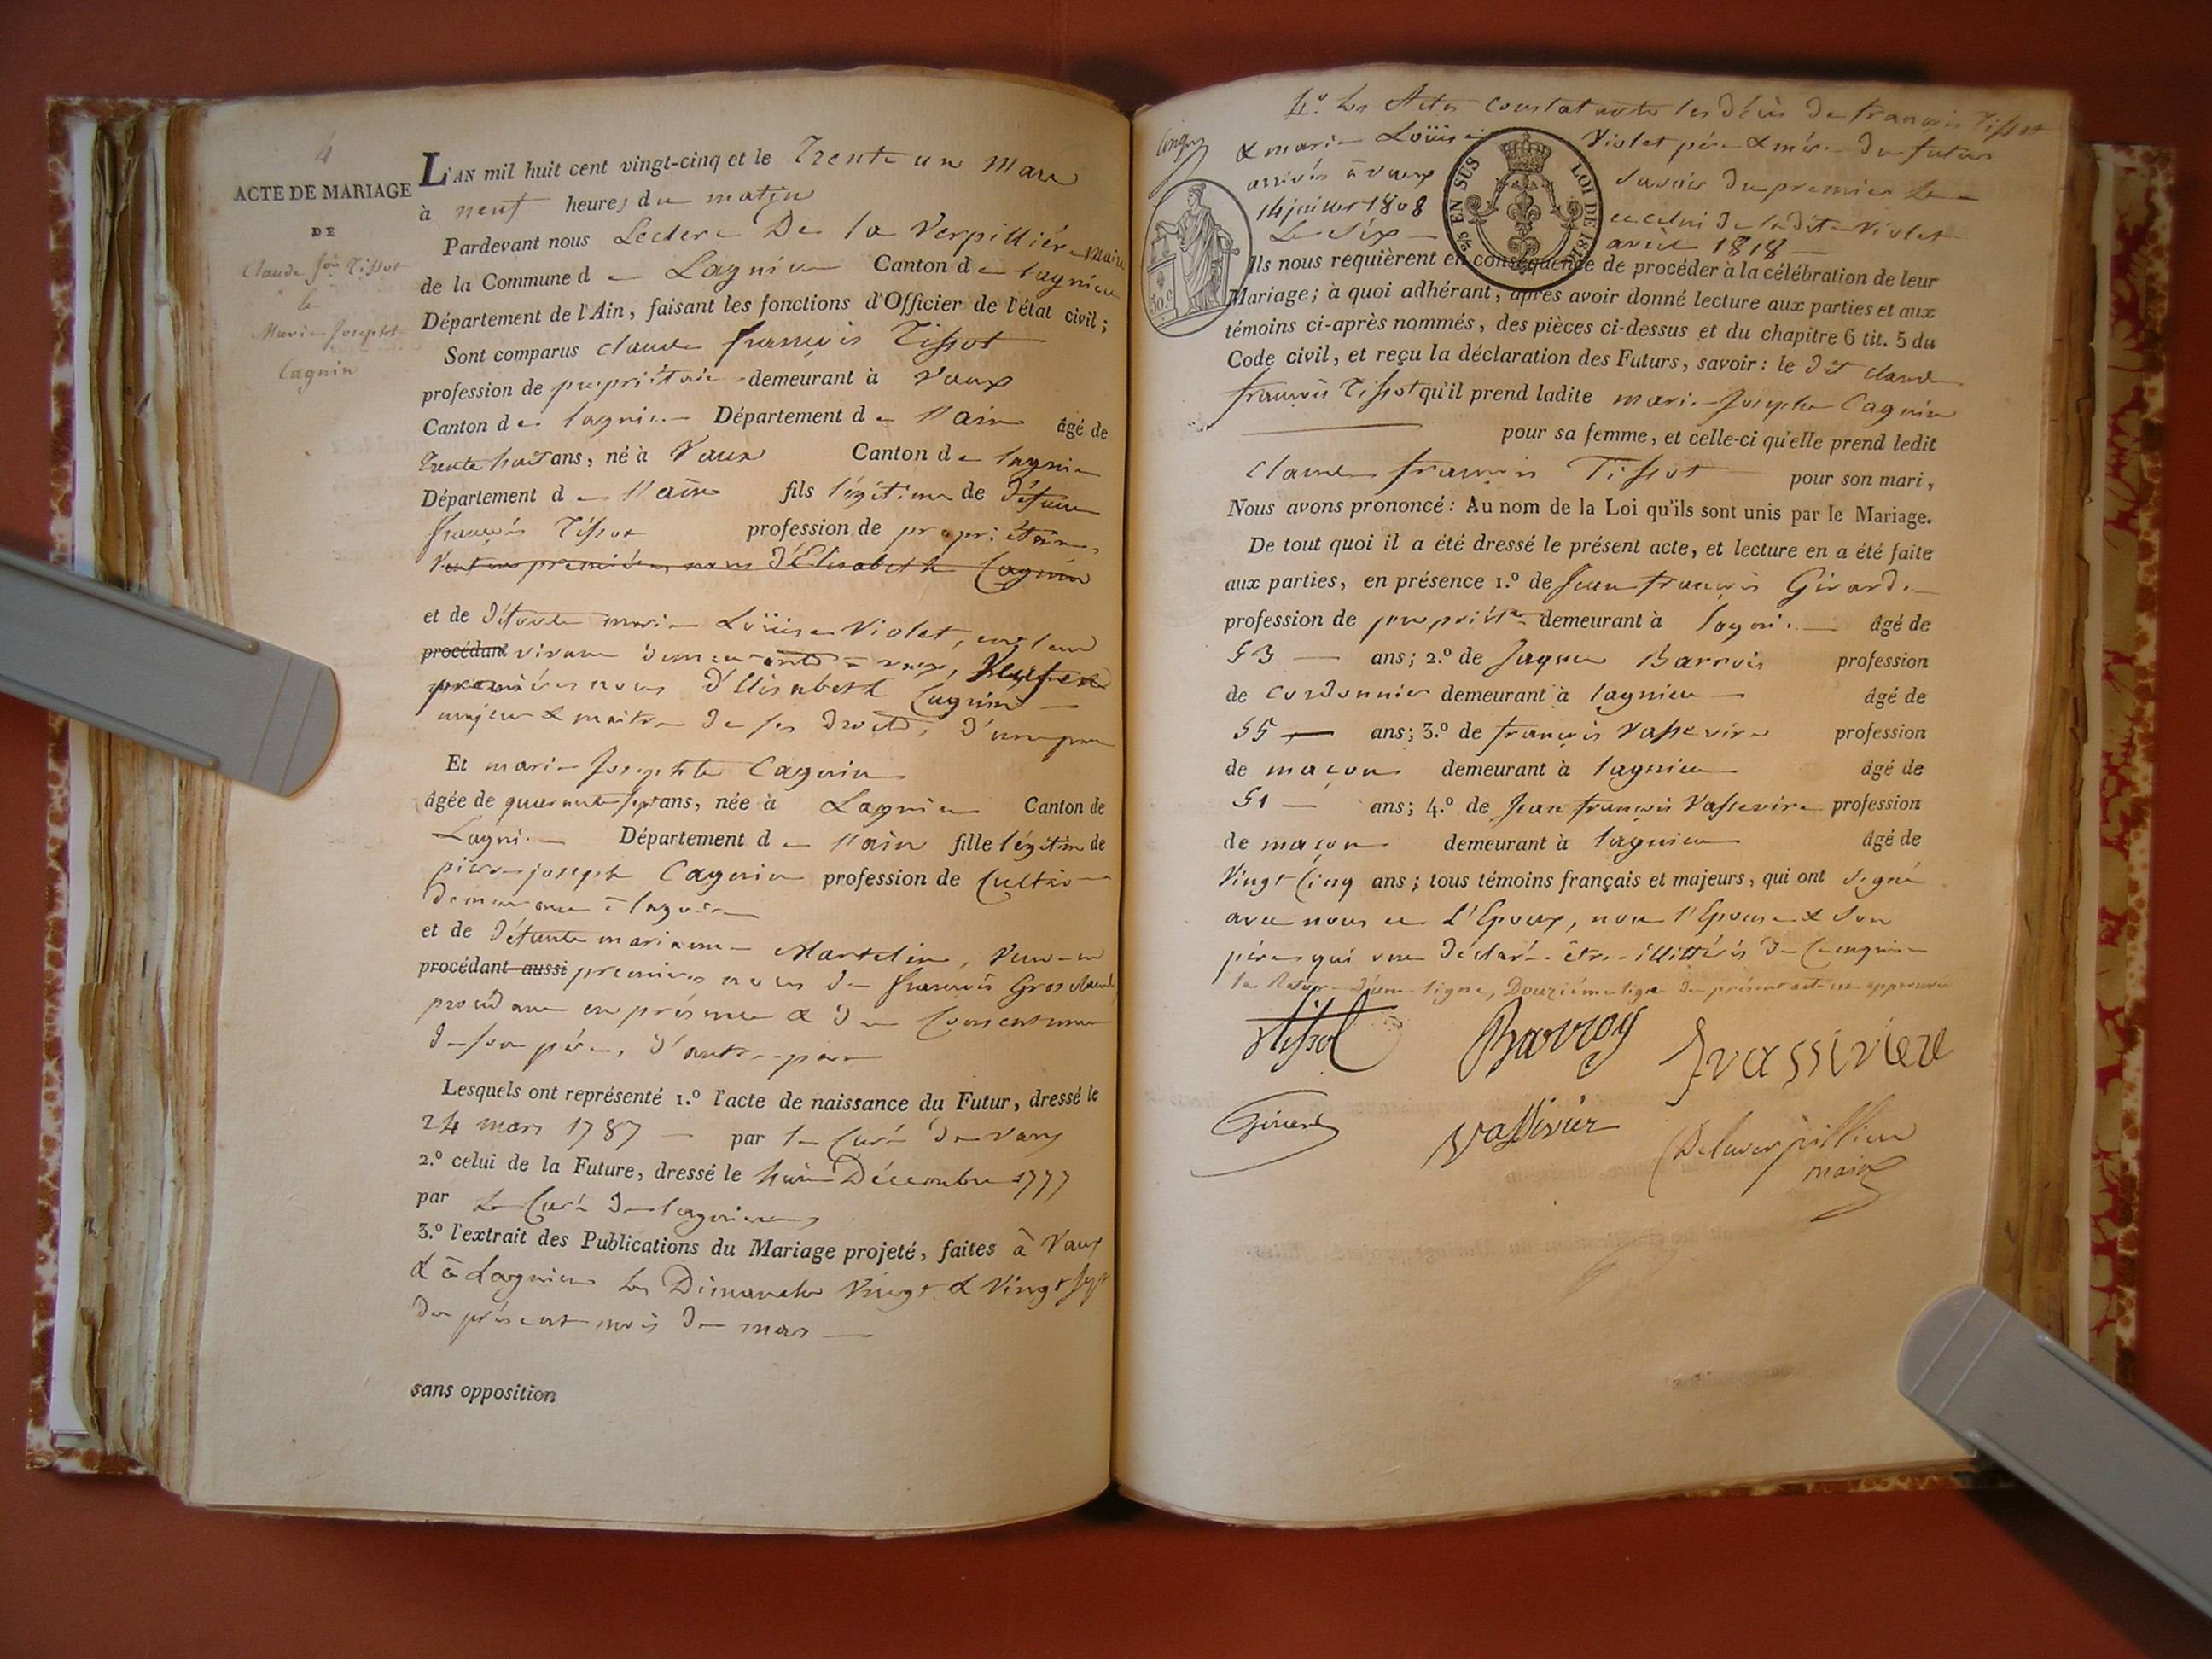 4
ACTE DE MARIAGE
DE
Claude fois Tissot
&
Marie Josephte
Cagnin
L'AN mil huit cent vingt-cinq et le Trente un Mars
à neuf heures du matin
Pardevant nous Leclerc De la Verpillière Maire
de la Commune de Lagnieu Canton de lagnieu
Département de l'Ain, faisant les fonctions d'Officier de l'état civil;
Sont comparus claude françois Tissot
profession de propriétaire demeurant à Vaux
Canton de lagnieu Département de l'ain âgé de
trente huit ans, né à Vaux Canton de lagnieu
Département de l'ain fils légitime de défunt
françois Tissot profession de propriétaire,
Veuf en premières noces d'Elisabeth Cagnin
et de défunte marie Loüise Violet, en leur
procédant vivant demeurants à vaux, Veuf en
premières noces d'Elisabeth Cagnin
majeur & maitre de ses droits, d'une part
Et marie Josephte Cagnin
âgée de quarante sept ans, née à Lagnieu Canton de
Lagnieu Département de l'ain fille légitime de
pierre joseph Cagnin profession de Cultiv
demeurant à lagnieu
et de défunte marianne Martelin, Veuve en
procédant aussi premières noces de françois Grosclaude
procédant en présence & du Consentement
de son père, d'autre part
Lesquels ont représenté 1.º l'acte de naissance du Futur, dressé le
24 mars 1787 par le Curé de vaux
2.º celui de la Future, dressé le huit Décembre 1777
par Le Curé de lagnieu
3.º l'extrait des Publications du Mariage projeté, faites à Vaux
& à Lagnieu les Dimanches Vingt & Vingt sept
du présent mois de mars
sans opposition
4.º Les Actes constatants les décès de françois Tissot
& marie Loüise Violet père & mère du futur
arrivés à vaux savoir du premier le
14 janvier 1808 et celui de ladite Violet
Le six avril 1818
2/5 EN SUS LOI DE 181
50.c
Ils nous requièrent en conséquence de procéder à la célébration de leur
Mariage; à quoi adhérant, après avoir donné lecture aux parties et aux
témoins ci-après nommés, des pièces ci-dessus et du chapitre 6 tit. 5 du
Code civil, et reçu la déclaration des Futurs, savoir: le dit claude
françois Tissot qu'il prend ladite marie Josephte Cagnin
pour sa femme, et celle-ci qu'elle prend ledit
claude françois Tissot pour son mari,
Nous avons prononcé: Au nom de la Loi qu'ils sont unis par le Mariage.
De tout quoi il a été dressé le présent acte, et lecture en a été faite
aux parties, en présence 1.º de Jean françois Girard
profession de propriétre demeurant à lagnieu âgé de
53 ans; 2.º de Jaques Barrois profession
de cordonnier demeurant à lagnieu âgé de
55 ans; 3.º de françois Vassevire profession
de maçon demeurant à lagnieu âgé de
51 ans; 4.º de Jean françois Vassevire profession
de maçon demeurant à lagnieu âgé de
Vingt Cinq ans; tous témoins français et majeurs, qui ont signé
avec nous et L'Epoux, non l'Epouse & son
père qui ont déclaré être illittérés de ce enquis
la Rature d'une ligne, Douzième ligne du présent acte est approuvée
Tissot Barroy fvassiviere
Girard Vassivier Delaverpilliere
maire